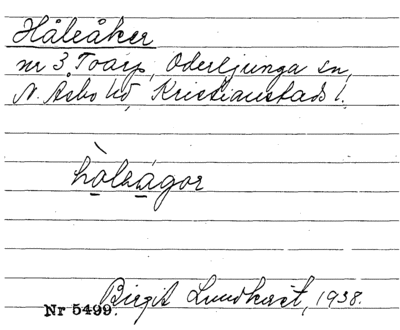 Håleåker
nr 3 Toarp, Oderljunga sn,
N. Åsbo hd, Kristianstads l.
hòleågor
Birgit Lundkvist, 1938.
Nr 5499.